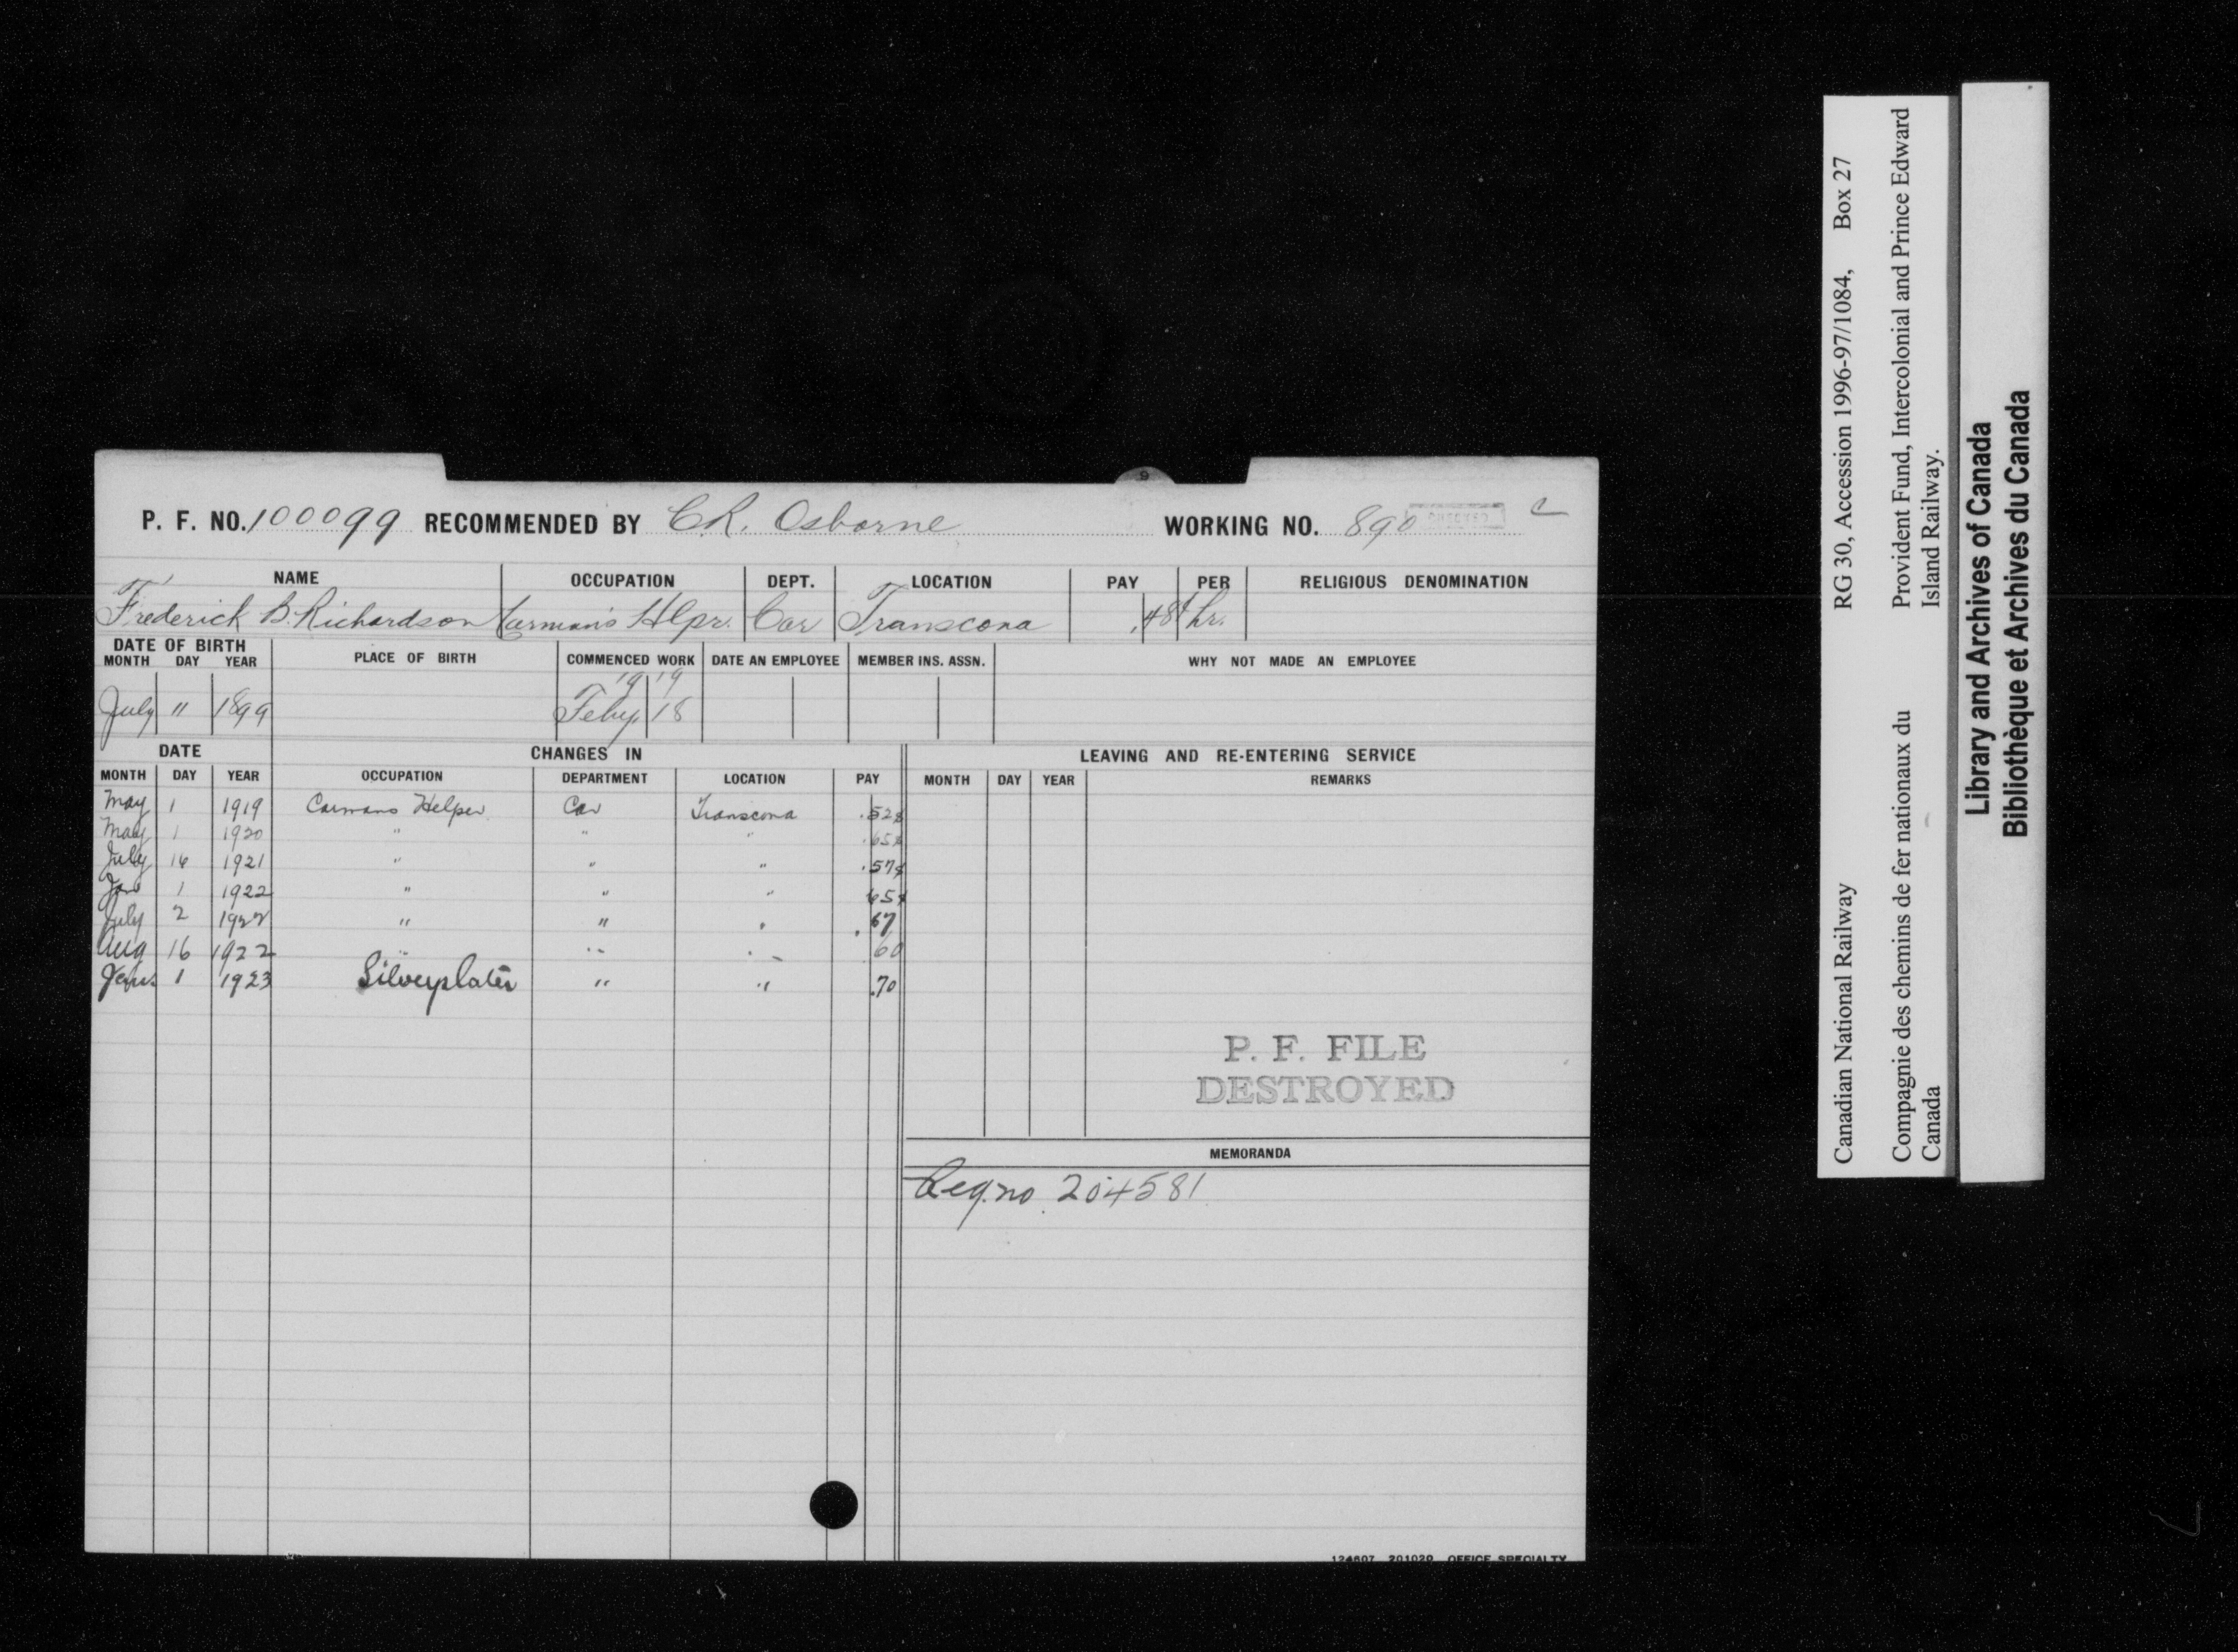 P. F. NO. 100099 RECOMMENDED BY C.R. Osborne WORKING NO. 890 CHECKED
NAME OCCUPATION DEPT. LOCATION PAY PER RELIGIOUS DENOMINATION
Frederick B. Richardson Carman's Hlpr. Car Transcona .48¢ hr.
DATE OF BIRTH
MONTH DAY YEAR PLACE OF BIRTH COMMENCED WORK DATE AN EMPLOYEE MEMBER INS. ASSN. WHY NOT MADE AN EMPLOYEE
1919
July " 1899 Feby. 18
DATE CHANGES IN LEAVING AND RE-ENTERING SERVICE
MONTH DAY YEAR OCCUPATION DEPARTMENT LOCATION PAY MONTH DAY YEAR REMARKS
May 1 1919 Carmans Helper Car Transcona .52¢
May 1 1920 " " " .65¢
July 16 1921 " " " .57¢
Jan 1 1922 " " " 65¢
July 2 1922 " " " .67
Aug 16 1922 " " " 60
1 1923 Silverplater " " .70
P. F. FILE
DESTROYED
MEMORANDA
Reg. no. 204581
124607 201020 OFFICE SPECIALTY
Canadian National Railway RG 30, Accession 1996-97/1084, Box 27
Compagnie des chemins de fer nationaux du Provident Fund, Intercolonial and Prince Edward
Canada Island Railway.
Library and Archives of Canada
Bibliothèque et Archives du Canada